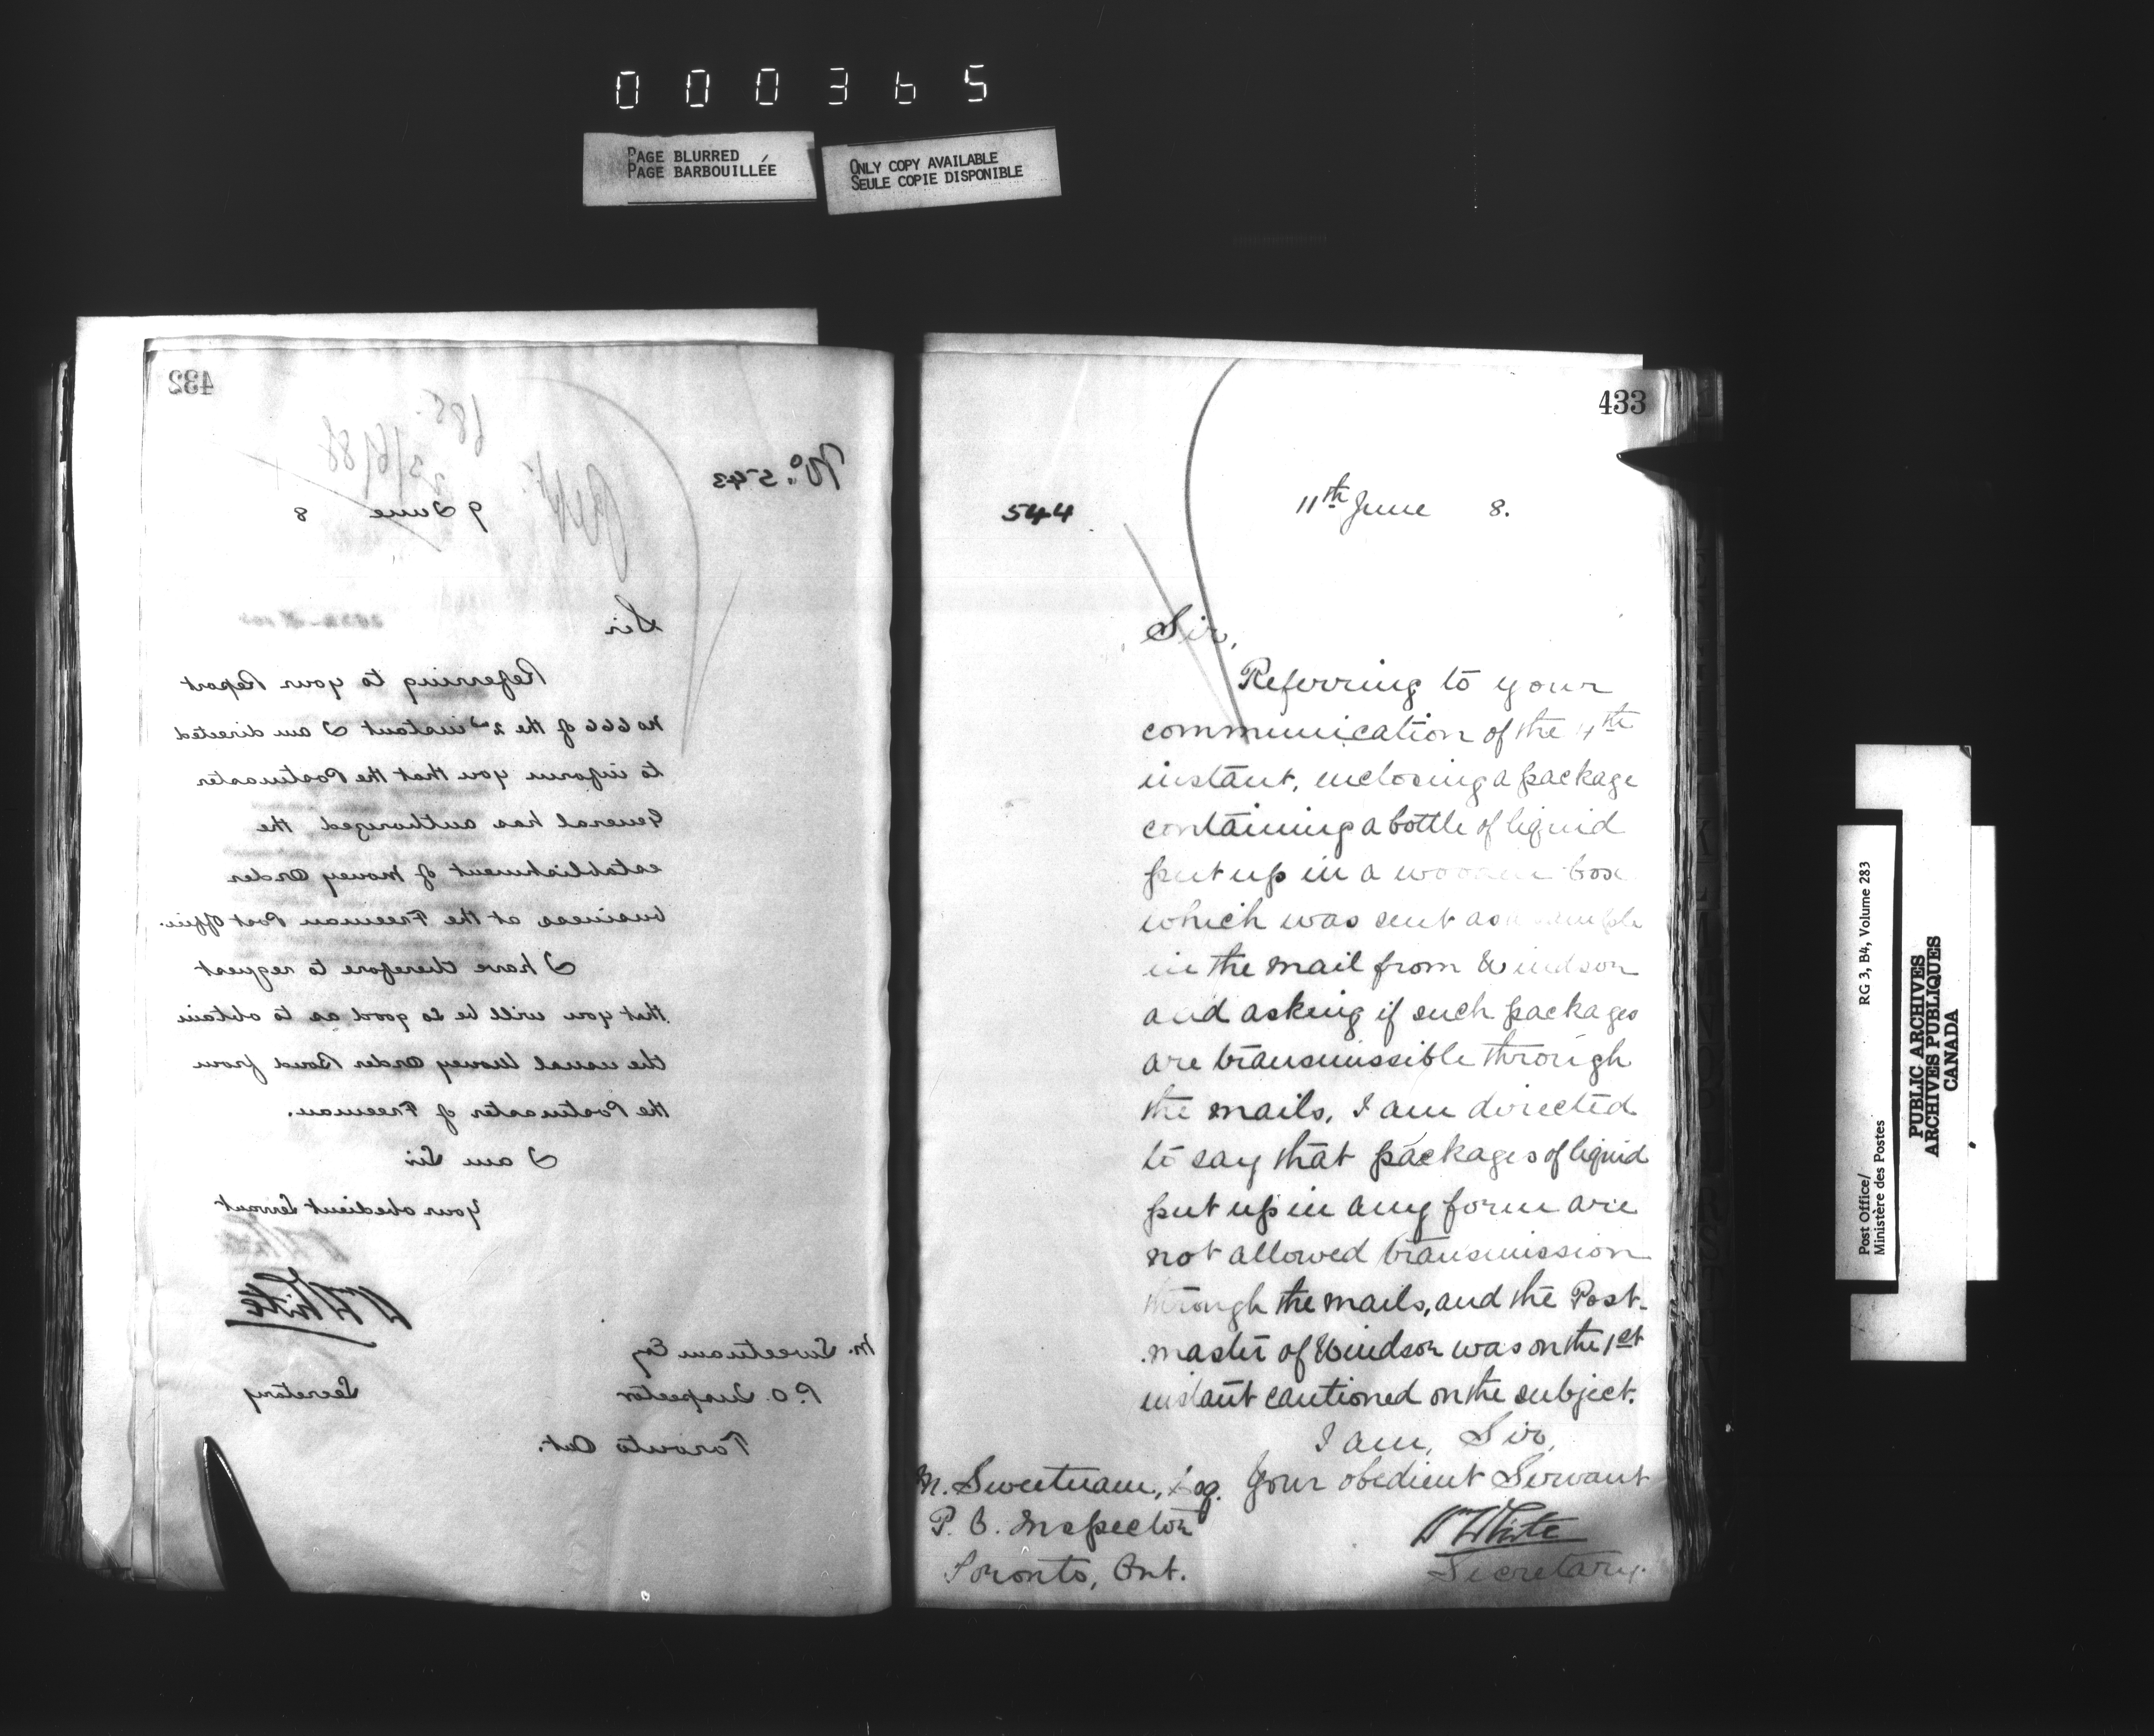 000365
PAGE BLURRED
PAGE BARBOUILLÉE
ONLY COPY AVAILABLE
SEULE COPIE DISPONIBLE
432
685
23/6/88
No. 543
9 June 8
Sir
Referring to your Report
No 666 of the 2nd instant I am directed
to inform you that the Postmaster
General has authorized the
establishment of Money Order
business at the Freeman Post Office.
I have therefore to request
that you will be so good as to obtain
the usual Money Order Bond from
the Postmaster of Freeman.
I am Sir
Your obedient Servant
W White
M. Sweetnam Esq
P.O. Inspector
Secretary
Toronto Ont.
433
544
11th June 8.
Sir,
Referring to your
communication of the 4th
instant, inclosing a package
containing a bottle of liquid
put up in a wooden box
which was sent as a sample
in the mail from Windsor
and asking if such packages
are transmissible through
the mails, I am directed
to say that packages of liquid
put up in any form are
not allowed transmission
through the mails, and the Post-
master of Windsor was on the 1st
instant cautioned on the subject.
I am, Sir,
Your obedient Servant
M. Sweetnam, Esq.
P. O. Inspector
Toronto, Ont.
W White
Secretary.
Post Office/
Ministère des Postes
RG 3, B4, Volume 283
PUBLIC ARCHIVES
ARCHIVES PUBLIQUES
CANADA